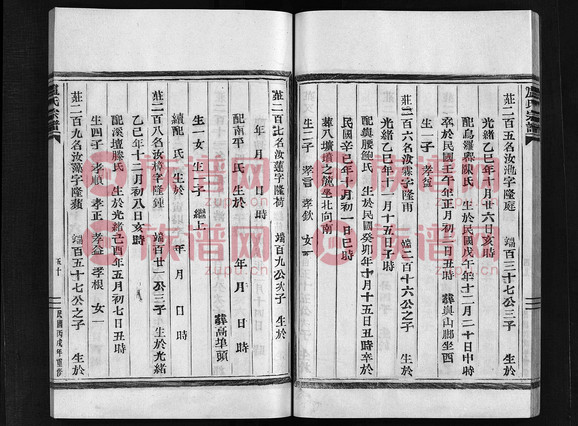 莊二百五名汝鴻字隆庭　端百三十七公三子　生於
光緒乙巳年十月廿六日亥時
配烏羅寨陳氏　生於民國戊午年十二月二十日申時
卒於民國壬午年正月初二日丑時　葬與山腳坐西
生一子　孝益
莊二百六名汝霖字隆雨　端二百十六公二子　生於
光緒乙巳年十一月十五日子時
配與腰鮑氏　生於民國癸卯年十月十五日丑時卒於
民國辛巳年十月初一日巳時
葬八墳墳之盤坐北向南
生二子　孝言　孝欽　女一
莊二百七名汝蓮字隆荷　端百九公次子　生於
年　月　日　時
配南平　氏　生於　年　月　日　時
生一女　生二子　繼上　葬高埠頭
續配　氏　生於　年　月　日　時
莊二百八名汝樟字隆鍾　端百廿一公三子　生於光緒
乙巳年十二月初八日亥時
配溪壇滕氏　生於光緒己酉年五月初七日丑時
生四子　孝順　孝正　孝益　孝根　女一
莊二百九名汝藻字隆蘋　端百五十七公之子　生於
盧氏宗譜
五十
民國丙戌年重修
族谱网
zupu.cn